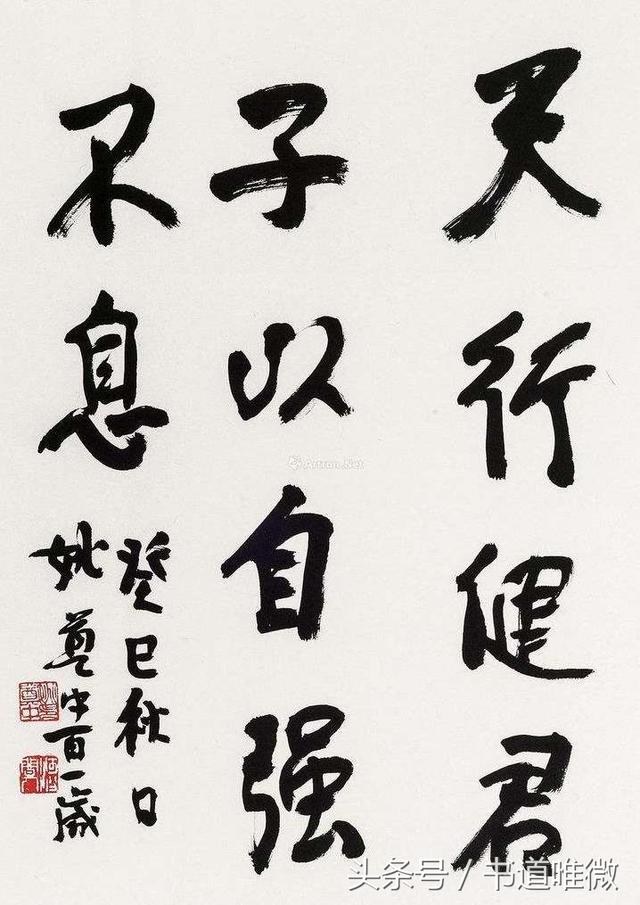 天行健君
子以自强
不息
癸巳秋日
姚奠中百一岁
Artron.Net
头条号 / 书道唯微